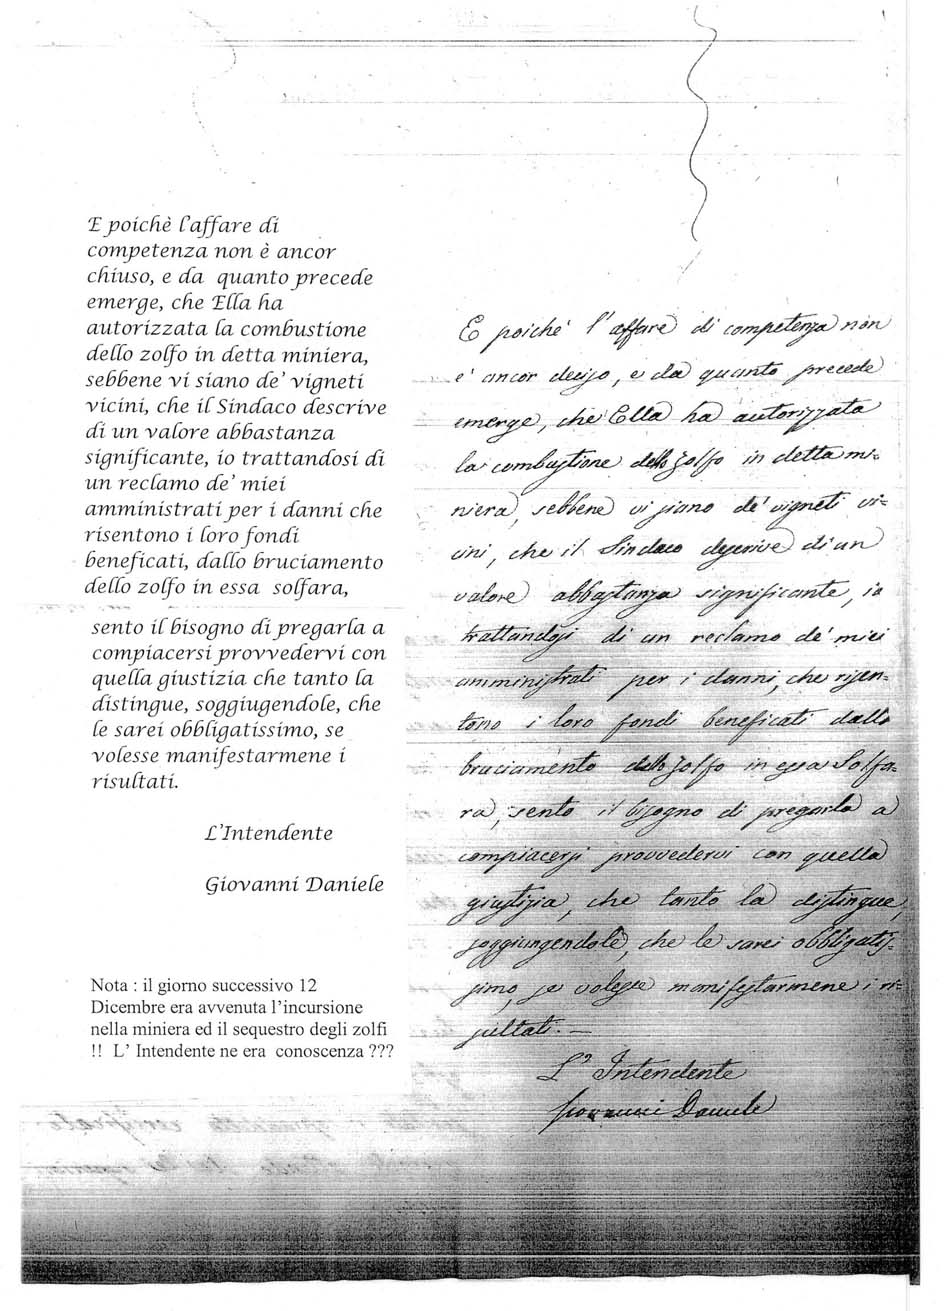 E poichè l'affare di
competenza non è ancor
chiuso, e da quanto precede
emerge, che Ella ha
autorizzata la combustione
dello zolfo in detta miniera,
sebbene vi siano de' vigneti
vicini, che il Sindaco descrive
di un valore abbastanza
significante, io trattandosi di
un reclamo de' miei
amministrati per i danni che
risentono i loro fondi
beneficati, dallo bruciamento
dello zolfo in essa solfara,
sento il bisogno di pregarla a
compiacersi provvedervi con
quella giustizia che tanto la
distingue, soggiugendole, che
le sarei obbligatissimo, se
volesse manifestarmene i
risultati.
L'Intendente
Giovanni Daniele
Nota : il giorno successivo 12
Dicembre era avvenuta l'incursione
nella miniera ed il sequestro degli zolfi
!! L' Intendente ne era conoscenza ???
E poiche' l'affare di competenza non
e' ancor deciso, e da quanto precede
emerge, che Ella ha autorizzata
la combustione dello zolfo in detta mi=
niera, sebbene vi siano de' vigneti vi=
cini, che il Sindaco descrive di un
valore abbastanza significante, io
trattandosi di un reclamo de' miei
amministrati per i danni, che risen=
tono i loro fondi beneficati dallo
bruciamento dello zolfo in essa Solfa=
ra, sento il bisogno di pregarla a
compiacersi provvedervi con quella
giustizia, che tanto la distingue,
soggiungendole, che le sarei obbligatis=
simo, se volesse manifestarmene i ri=
sultati. —
L' Intendente
Giovanni Daniele